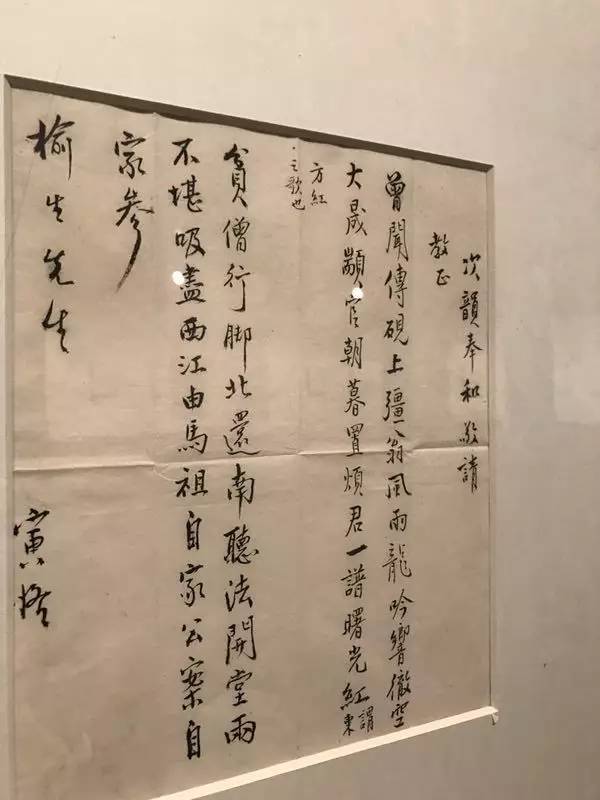 次韻奉和敬請
教正
曾聞傳硯上彊翁風雨龍吟響徹空
大晟顓官朝暮置煩君一譜曙光紅謂東
方紅
之歌也
貧僧行脚北還南聽法開堂雨
不堪吸盡西江由馬祖自家公案自
家參
榆生先生
寅恪